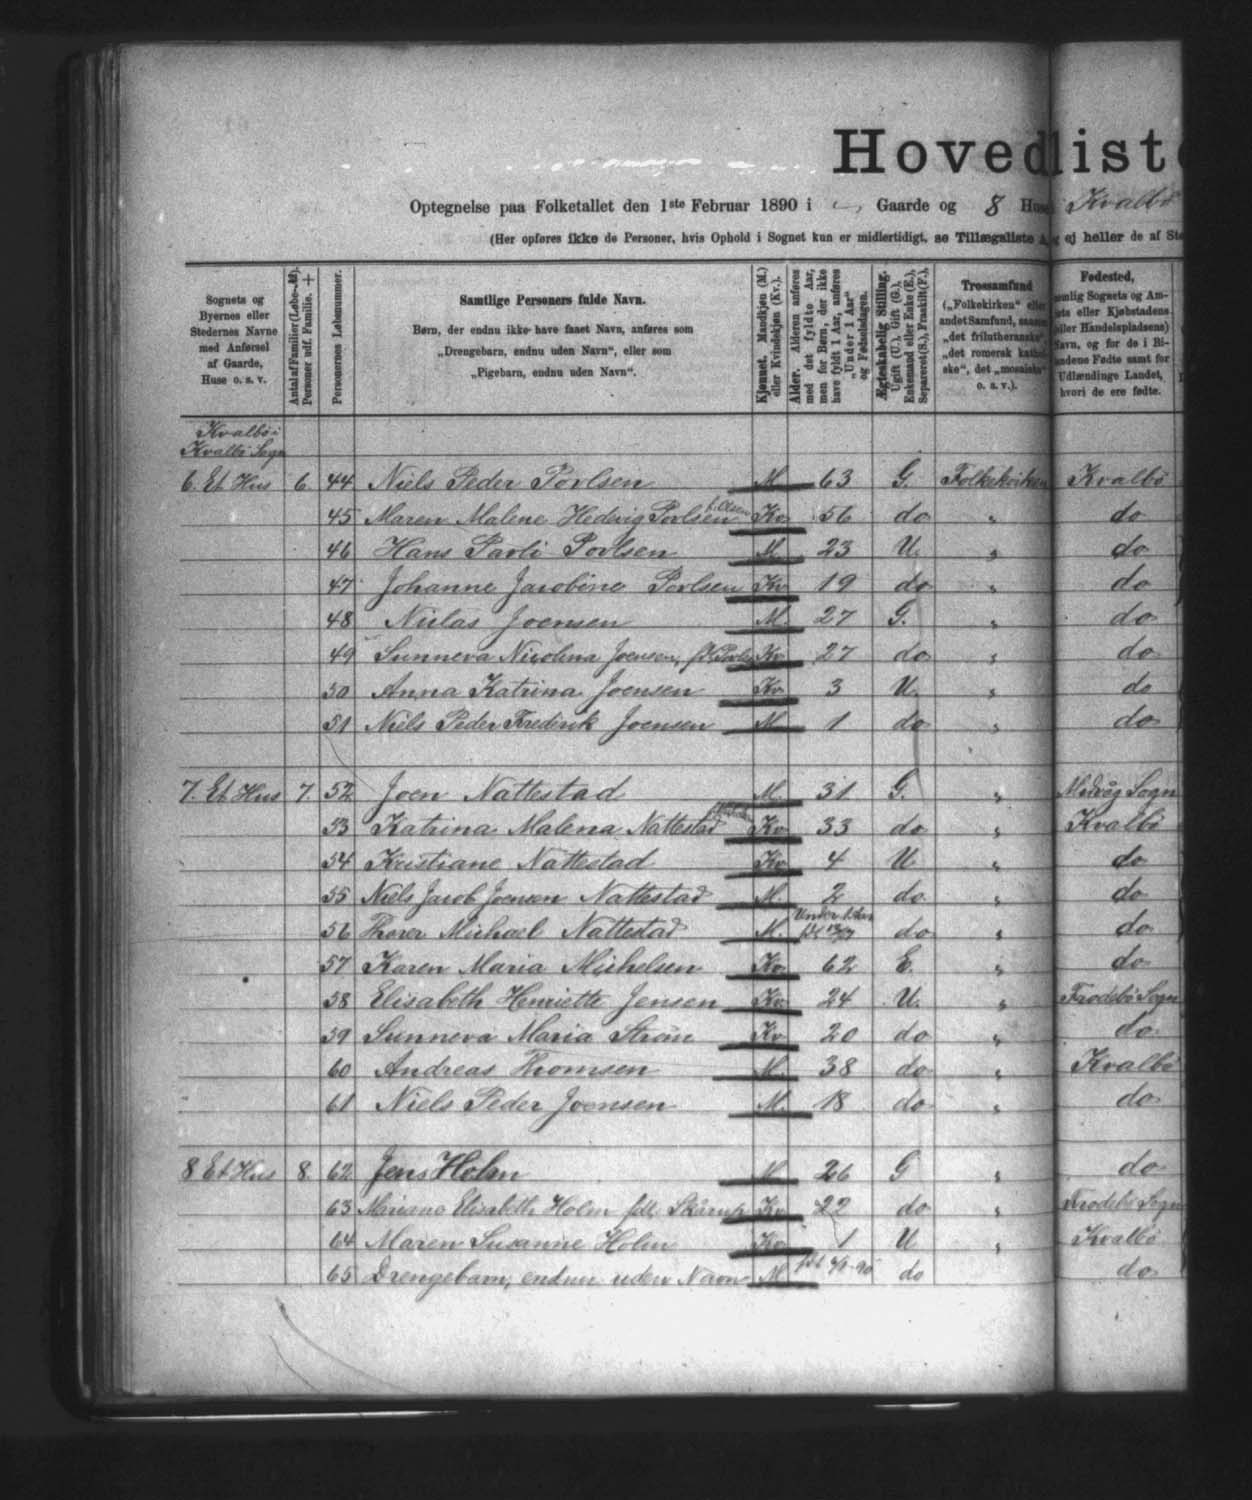 Hovedliste
Optegnelse paa Folketallet den 1ste Februar 1890 i „ Gaarde og 8 Huse Kvalbø
(Her opføres ikke de Personer, hvis Ophold i Sognet kun er midlertidigt, se Tillægsliste A, og ej heller de af
Sognets og
Byernes eller
Stedernes Navne
med Anførsel
af Gaarde,
Huse o. s. v.
Antal af Familier (Løbe-№).
Personer udf. Familie. +
Personernes Løbenummer.
Samtlige Personers fulde Navn.
Børn, der endnu ikke have faaet Navn, anføres som
„Drengebarn, endnu uden Navn", eller som
„Pigebarn, endnu uden Navn".
Kjønnet. Mandkjøn (M.)
eller Kvindekjøn (Kv.).
Alder. Alderen anføres
med det fyldte Aar,
men for Børn, der ikke
have fyldt 1 Aar, anføres
„Under 1 Aar"
og Fødselsdagen.
Ægteskabelig Stilling.
Ugift (U.), Gift (G.),
Enkemand eller Enke (E.),
Separeret (S.), Fraskilt (F.),
Trossamfund
(„Folkekirken" eller
andet Samfund, saasom
„det frilutheranske",
„det romersk kathol-
ske", det „mosaiske"
o. s. v.).
Fødested,
nemlig Sognets og Am-
tets eller Kjøbstadens
(eller Handelspladsens)
Navn, og for de i Bi-
landene Fødte samt for
Udlændinge Landet,
hvori de ere fødte.
Kvalbø i
Kvalbø Sogn
6. Et Hus 6. 44 Niels Peder Povlsen M. 63 G. Folkekirken Kvalbø
45 Maren Malene Hedevig Povlsen f. Olsen Kv. 56 do „ do
46 Hans Pavli Povlsen M. 23 U. „ do
47 Johanne Jacobine Povlsen Kv. 19 do „ do
48 Niclas Joensen M. 27 G. „ do
49 Sunneva Nicolina Joensen, Kv. 27 do „ do
50 Anna Katrina Joensen Kv. 3 U. „ do
51 Niels Peder Fredirik Joensen M. 1 do „ do
7. Et Hus 7. 52 Joen Nattestad M. 31 G. „ Midvåg Sogn
53 Katrina Malena Nattestad Kv. 33 do „ Kvalbø
54 Kristiane Nattestad Kv. 4 U. „ do
55 Niels Jacob Joensen Nattestad M. 2 do. „ do
56 Michael Nattestad M. Under 1 Aar do „ do
57 Karen Maria Michelsen Kv. 62 E. „ do
58 Elisabeth Henriette Jensen Kv. 24 U. „ Frodebø Sogn
59 Sunneva Maria Kv. 20 do „ do
60 Andreas Thomsen M. 38 do „ Kvalbø
61 Niels Peder Joensen M. 18 do „ do
8 Et Hus 8. 62 Jens Holm M. 26 G „ do
63 Mariane Elisabeth Holm fdt. Skårup Kv. 22 do „ Frodebø Sogn
64 Maren Susanne Holm Kv. 1 U „ Kvalbø
65 Drengebarn, endnu uden Navn M. do do